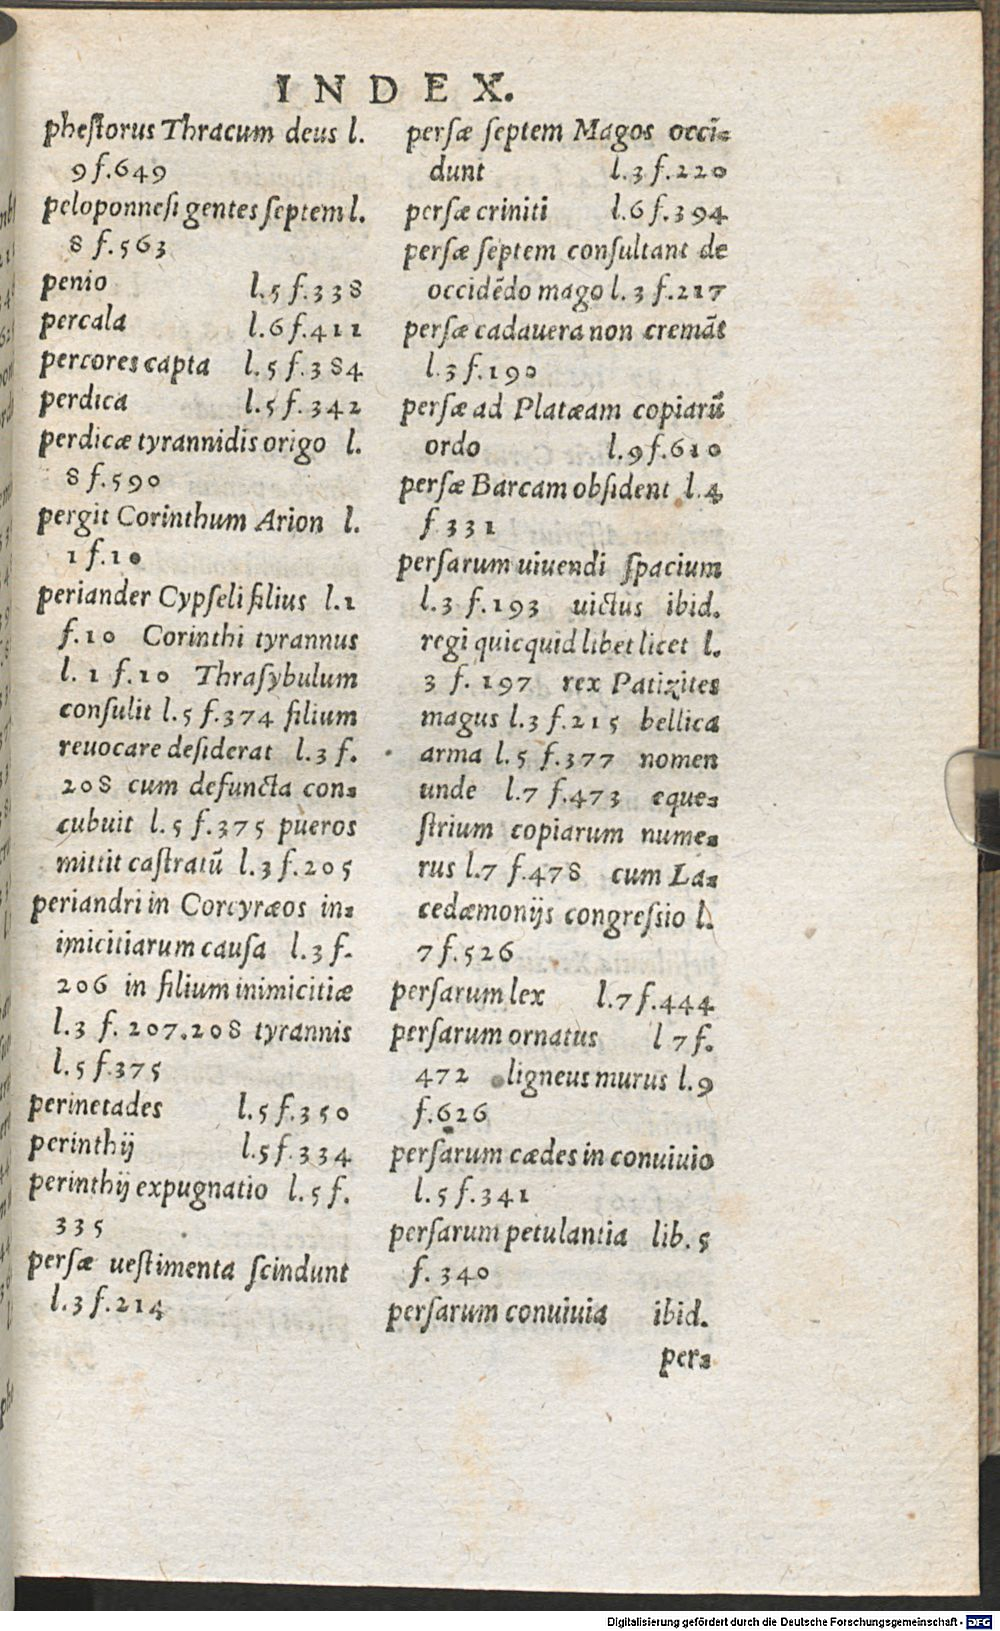 INDEX.
phestorus Thracum deus l.
9 f.649
peloponnesi gentes septem l.
8 f.563
penio l.5 f.338
percala l.6 f.411
percores capta l.5 f.384
perdica l.5 f.342
perdicæ tyrannidis origo l.
8 f.590
pergit Corinthum Arion l.
1 f.10
periander Cypseli filius l.1
f.10 Corinthi tyrannus
l. 1 f.10 Thrasybulum
consulit l.5 f.374 filium
reuocare desiderat l.3 f.
208 cum defuncta con=
cubuit l.5 f.375 pueros
mittit castratū l.3 f.205
periandri in Corcyræos in=
imicitiarum causa l.3 f.
206 in filium inimicitiæ
l.3 f. 207.208 tyrannis
l.5 f.375
perinetades l.5 f.350
perinthij l.5 f.334
perinthij expugnatio l.5 f.
335
persæ uestimenta scindunt
l.3 f.214
persæ septem Magos occī=
dunt l.3 f.220
persæ criniti l.6 f.394
persæ septem consultant de
occidēdo mago l.3 f.217
persæ cadauera non cremāt
l.3 f.190
persæ ad Platæam copiarū
ordo l.9 f.610
persæ Barcam obsident l.4
f 331
persarum uiuendi spacium
l.3 f.193 uictus ibid.
regi quicquid libet licet l.
3 f. 197 rex Patizites
magus l.3 f.215 bellica
arma l.5 f.377 nomen
unde l.7 f.473 eque=
strium copiarum nume=
rus l.7 f.478 cum La=
cedæmonijs congressio l.
7 f.526
persarum lex l.7 f.444
persarum ornatus l 7 f.
472 ligneus murus l.9
f.626
persarum cædes in conuiuio
l.5 f.341
persarum petulantia lib. 5
f. 340
persarum conuiuia ibid.
per=
Digitalisierung gefördert durch die Deutsche Forschungsgemeinschaft - DFG